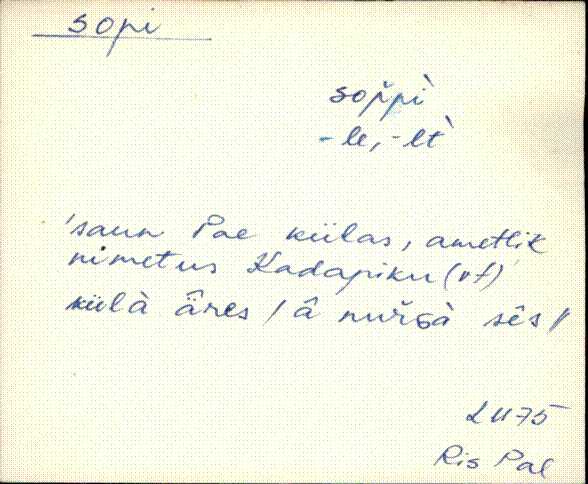 sopi
sop̆pì
-le, -lt̀
'saun Pae külas, ametlik
nimetus Kadapiku (vt)
külà âres / â nuȓgà sês /
LU75
Ris Pae